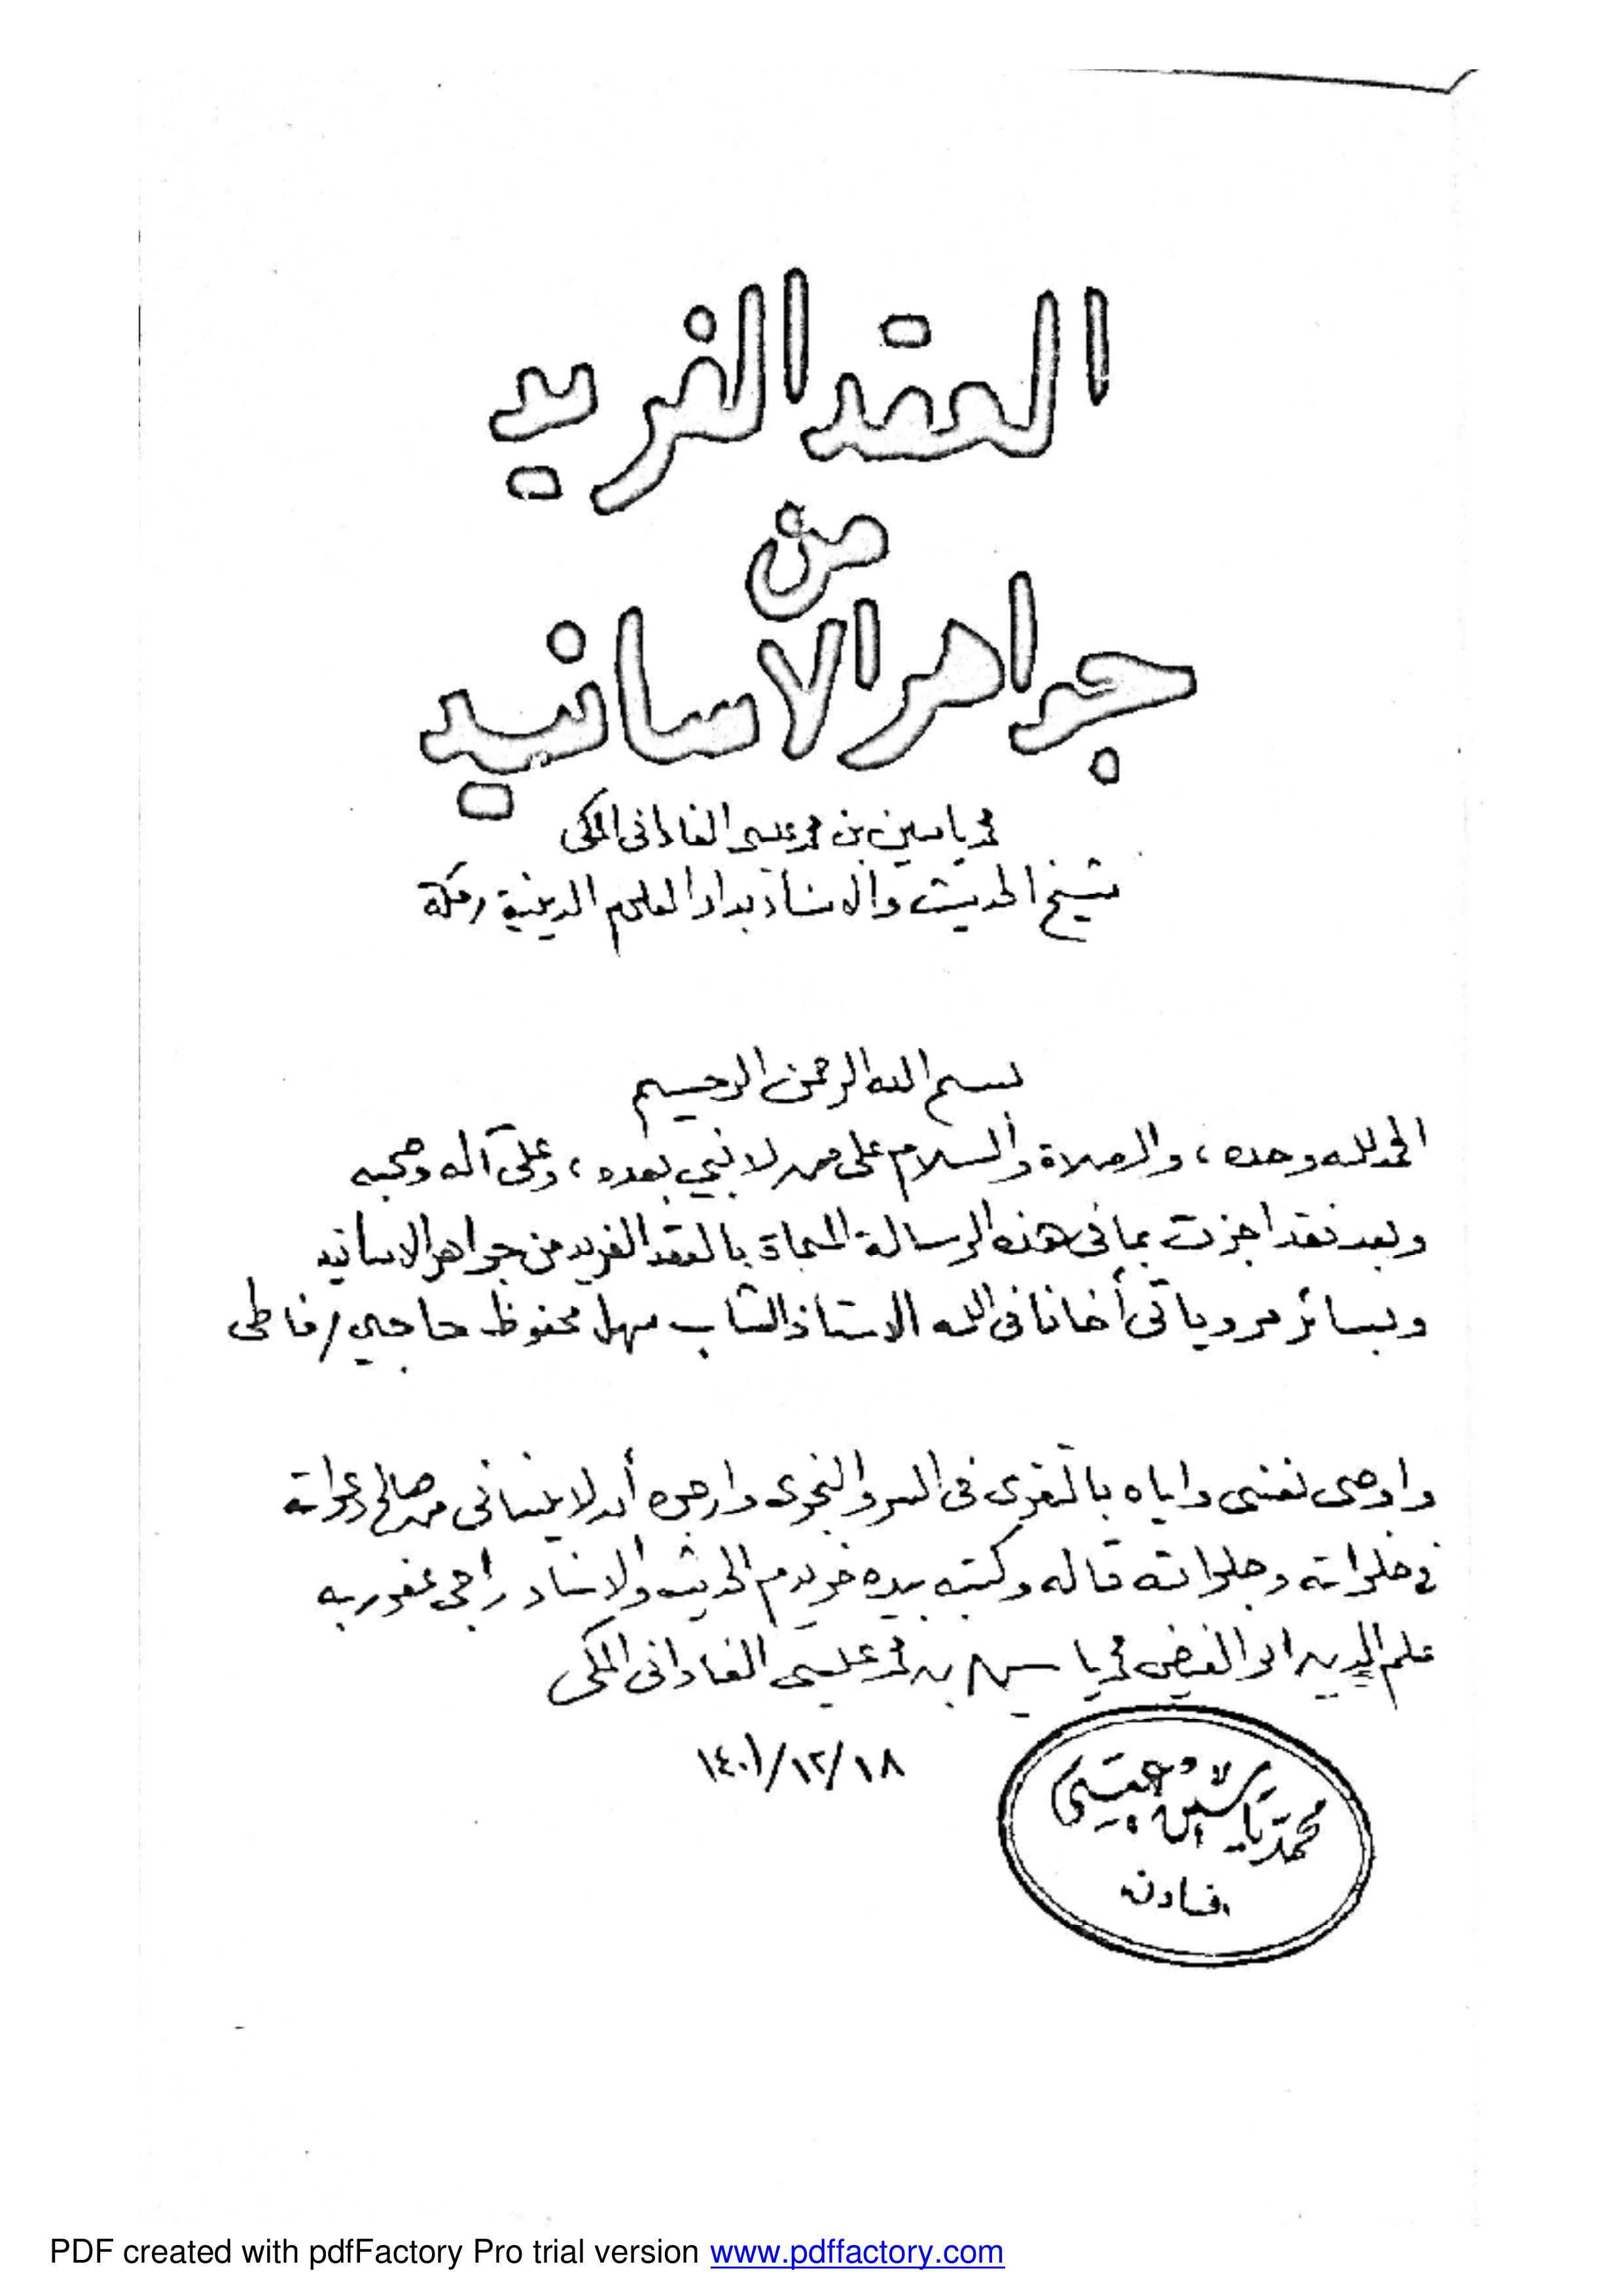 العقد الفريد
من
جواهر الاسانيد
محمد ياسين بن محمد عيسى الفاداني المكي
شيخ الحديث والاسناد بدار العلوم الدينية بمكة
بسم الله الرحمن الرحيم
الحمد لله وحده ، والصلاة والسلام على من لا نبي بعده ، وعلى آله وصحبه
وبعد فقد اجزت بما في هذه الرسالة المسماة بالعقد الفريد من جواهر الاسانيد
وبسائر مروياتي أخانا في الله الاستاذ الشاب سهل محفوظ حاجين / فاطى
واوصى نفسى واياه بالتقوى في السر والنجوى وارجوه أن لا ينساني من صالح دعواته
في خلواته وجلواته قاله وكتبه بيده خويدم الحديث والاسناد راجى عفو ربه
علم الدين ابو الفيض محمد ياسين بن محمد عيسى الفاداني المكي
١٤٠١/١٢/١٨
محمد ياسين عيسى
فادن
PDF created with pdfFactory Pro trial version www.pdffactory.com